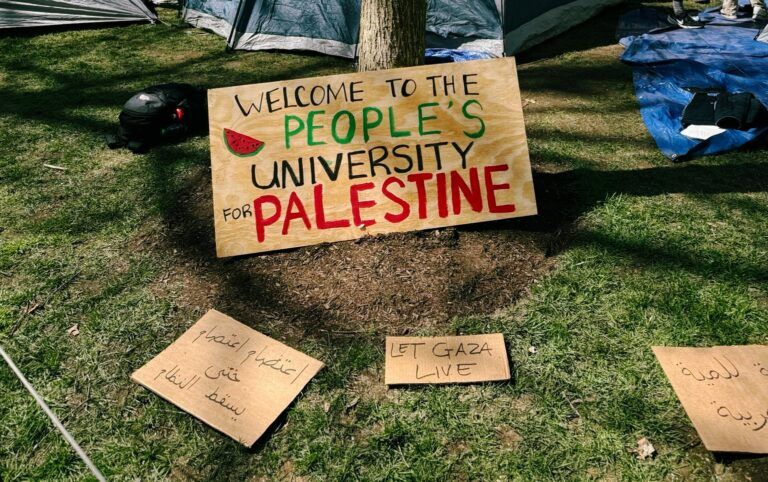 WELCOME TO THE
PEOPLE'S
UNIVERSITY
FOR PALESTINE
اعتصام اعتصام
حتى
يسقط النظام
LET GAZA
LIVE